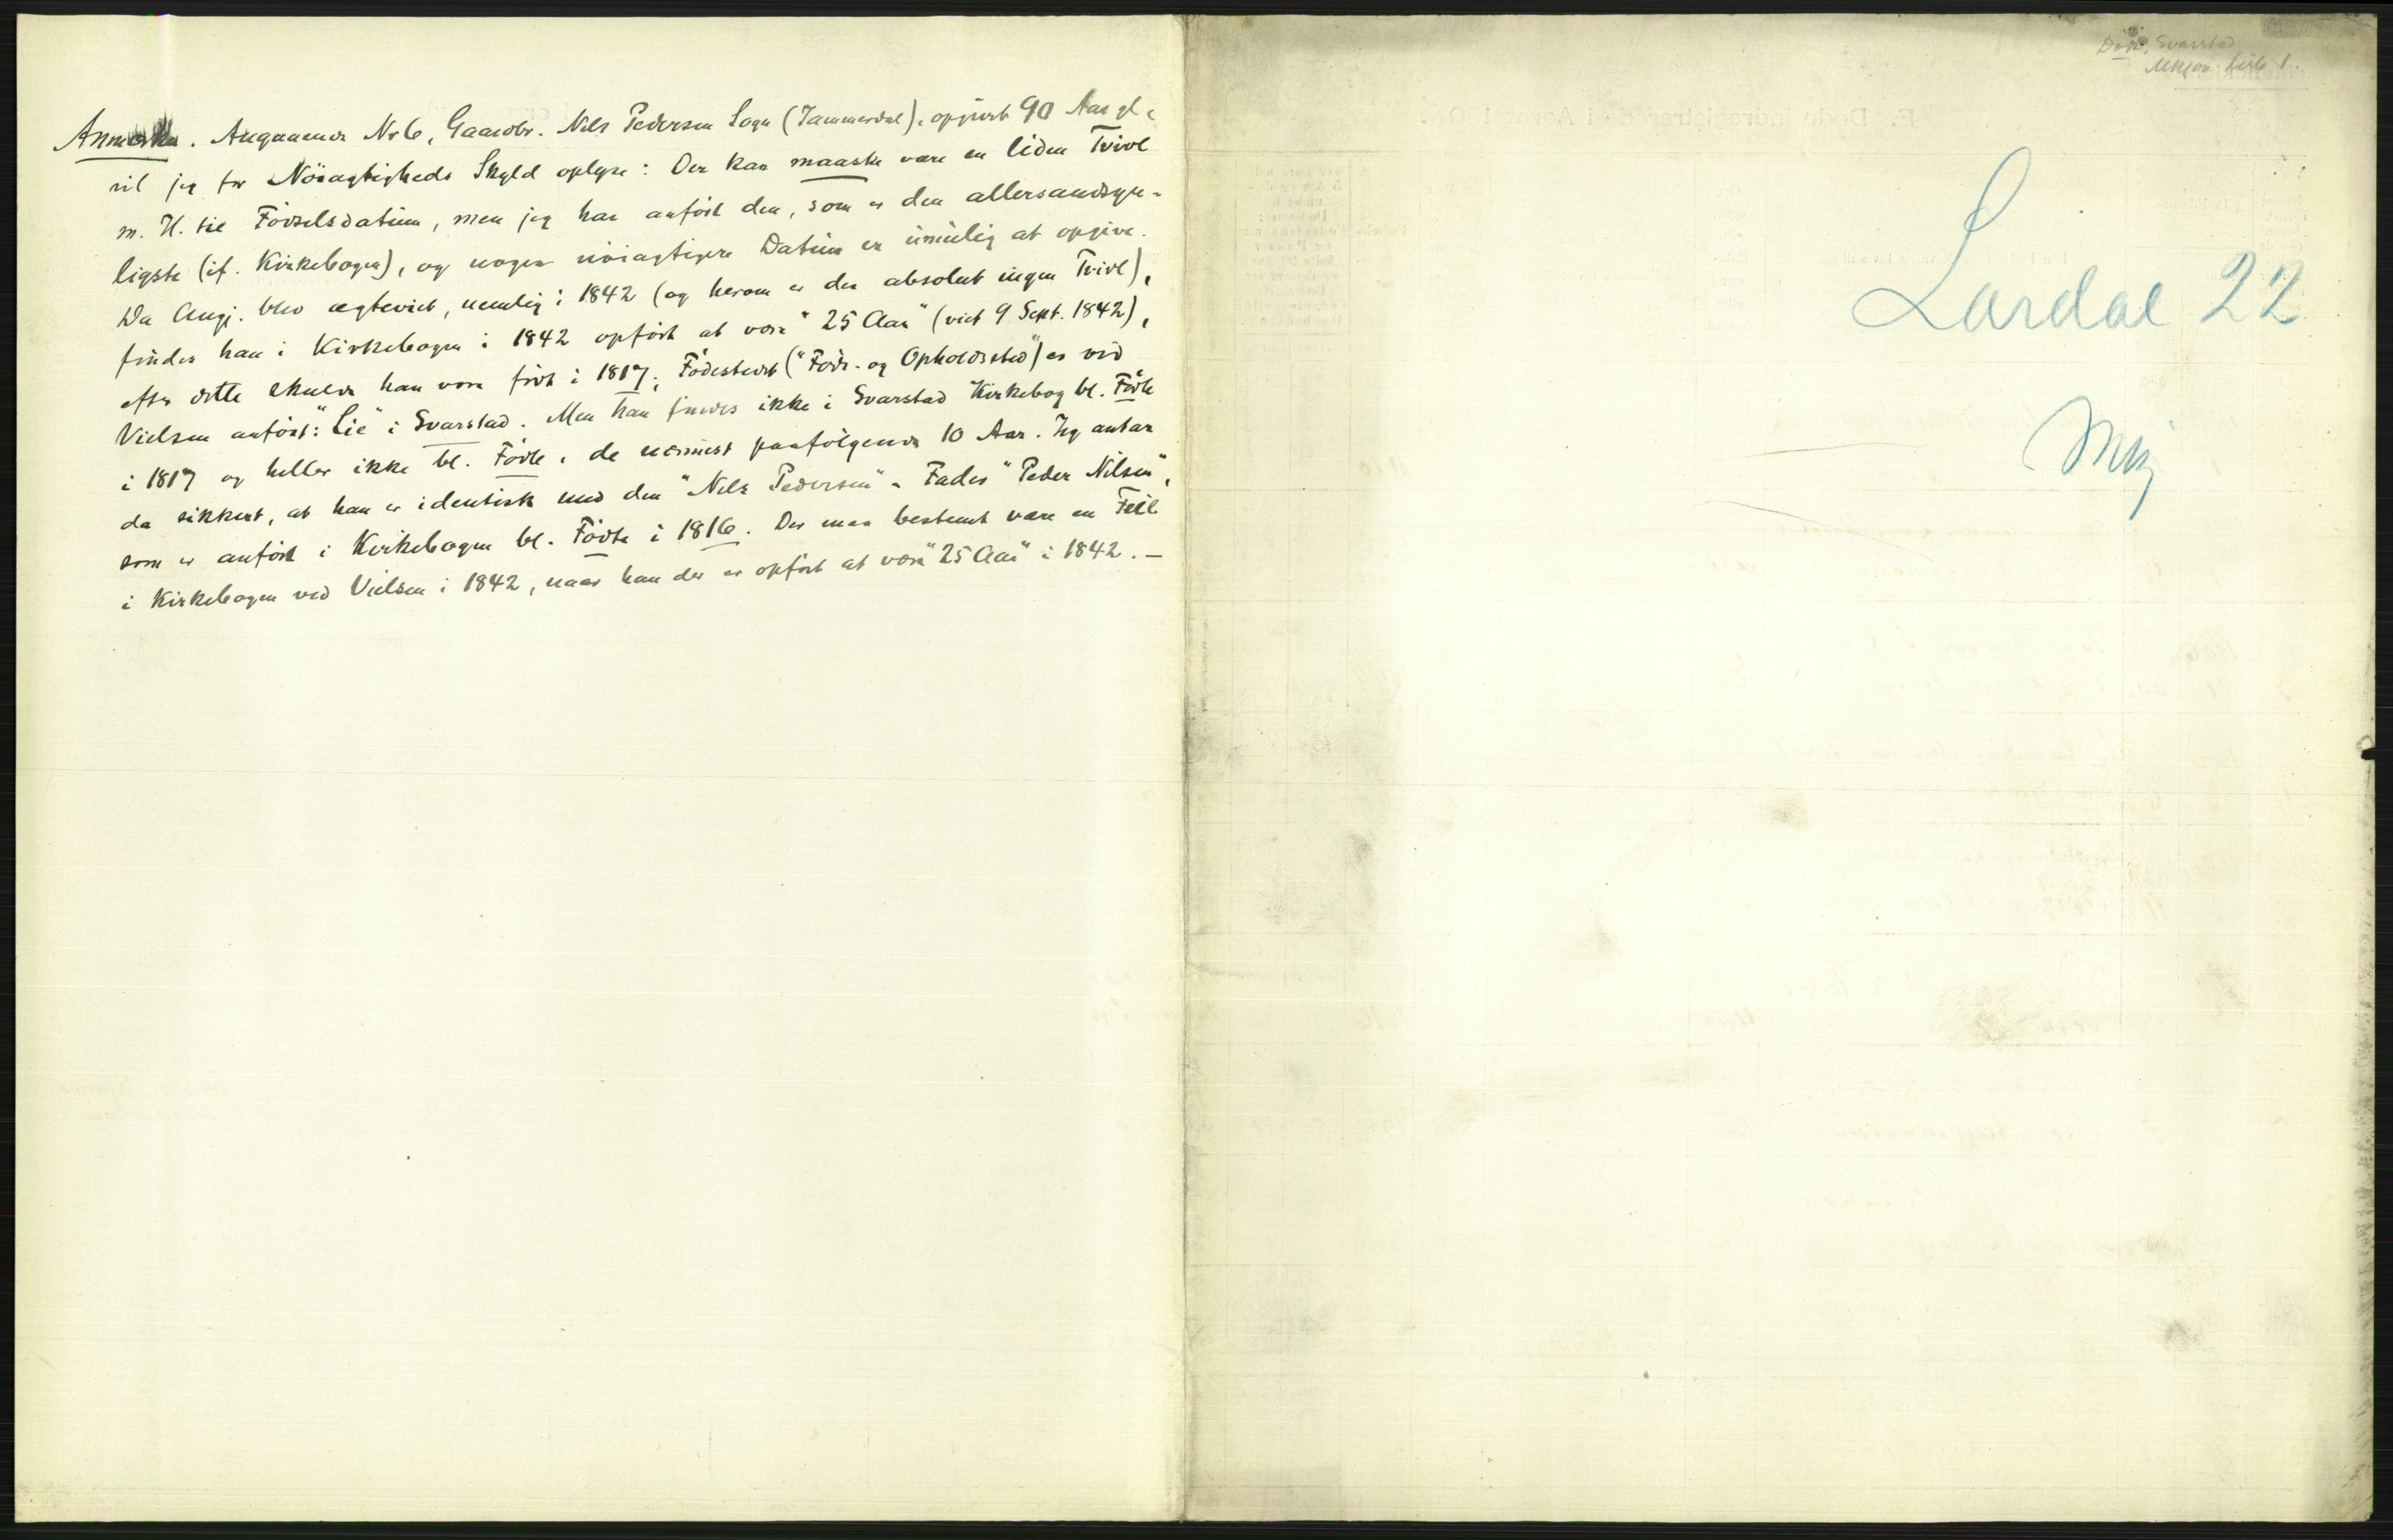 Anmerkn. Angaaende Nr 6, Gaardbr. Nils Pedersen Sogn (Jammerdal), opgivet 90 Aar gl.
vil jeg for Nöiagtigheds Skyld oplyse: Der kan maaske være en liden Tvivl
m. H. til Födselsdatum, men jeg har anfört den, som er den allersandsyn-
ligste (if. Kirkebogen), og nogen nöiagtigere Datum er umulig at opgive.
Da Angj. blev ægteviet, nemlig i 1842 (og herom er der absolut ingen Tvivl),
findes han i Kirkebogen i 1842 opfört at være "25 Aar" (viet 9 Sept. 1842),
efter dette skulde han være födt i 1817; Födestedet ("Föde- og Opholdssted") er ved
Vielsen anfört: "Lie" i Svarstad. Men han findes ikke i Svarstad Kirkebog bl. Födte
i 1817 og heller ikke bl. Födte i de nærmest paafölgende 10 Aar. Jeg antar
da sikkert, at han er identisk med den "Nils Pedersen" - Fader "Peder Nilsen",
som er anfört i Kirkebogen bl. Födte i 1816. Der maa bestemt være en Feil
i Kirkebogen ved Vielsen i 1842, naar han der er opfört at være "25 Aar" i 1842. —
Svarstad
Lardal 22